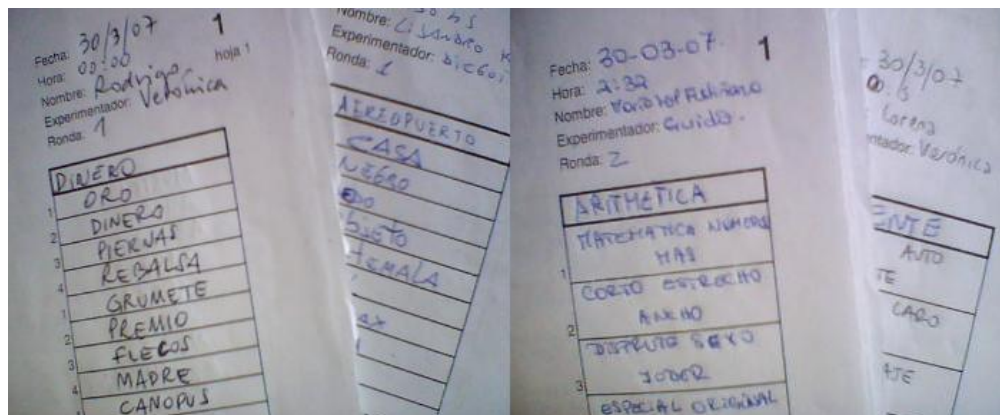 Fecha: 30/3/07
1
Hora: 00:00
hoja 1
Nombre: Rodrigo
Experimentador: Verónica
Ronda: 1
DINERO
1 ORO
2 DINERO
3 PIERNAS
REBALSA
1 GRUMETE
2 PREMIO
3 FLECOS
4 MADRE
CANOPUS
Nombre: LISANDRO
Experimentador:
Ronda: 1
AEREOPUERTO
CASA
NEGRO
Fecha: 30-03-07
1
Hora: 2:32
Nombre:
Experimentador: Guido.
Ronda: 2
ARITHETICA
MATEMATICA NUMEROS
MAS
1
CORTO ESTRECHO
ANCHO
2
DISFRUTE SEXO
JODER
3
ESPECIAL ORIGINAL
30/3/07
Lorena
Verónica
ENTE
AUTO
TE
CARO